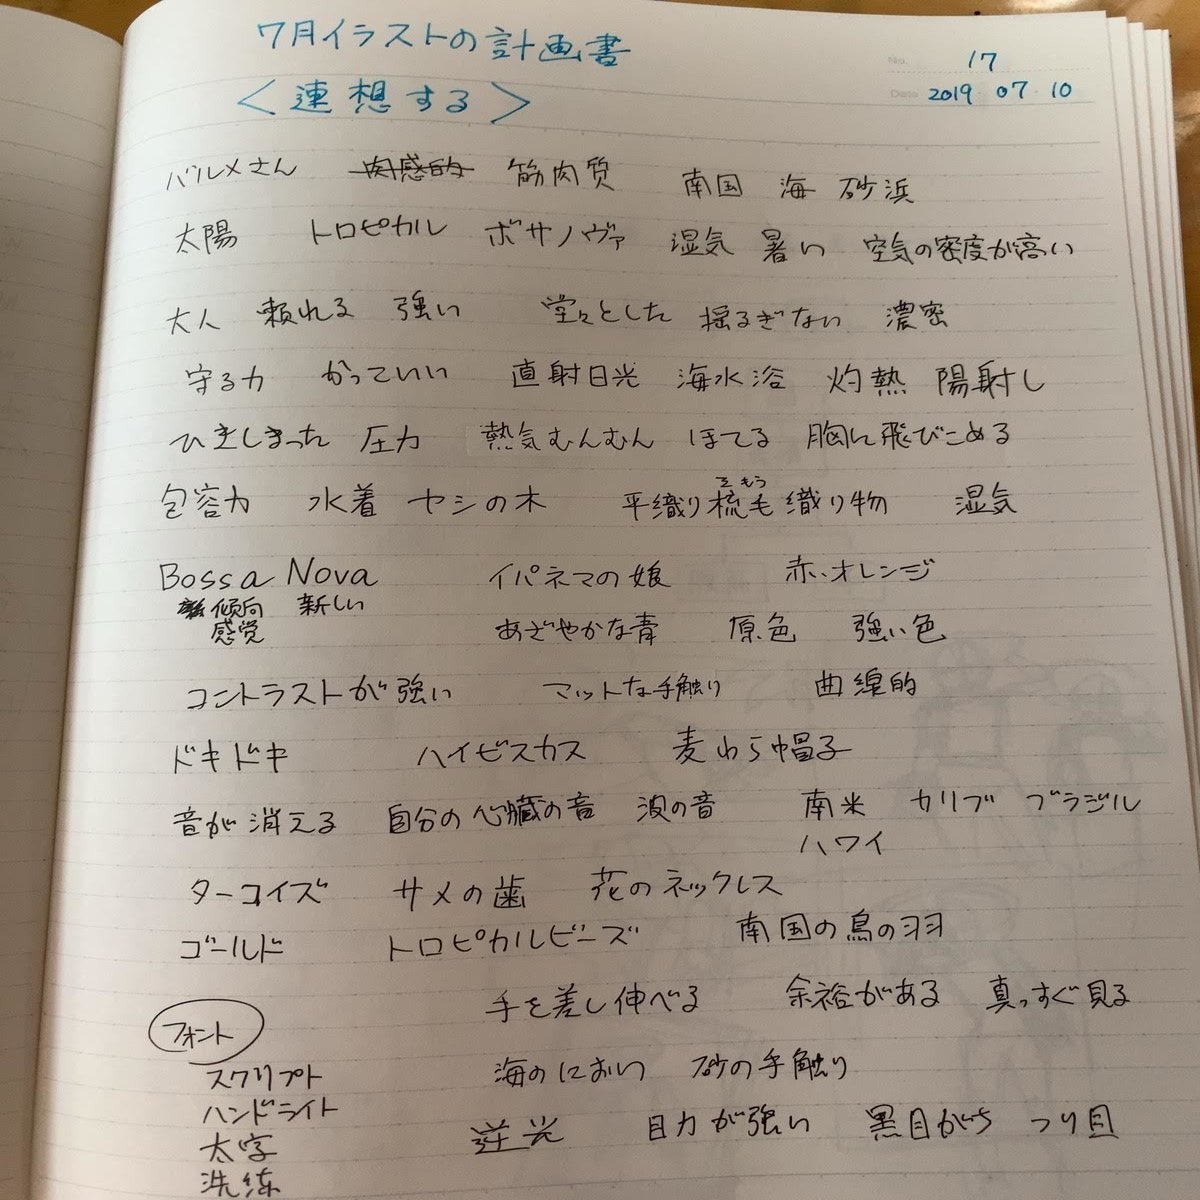 7月イラストの計画書
No. 17
<連想する>
Date 2019 07 10
バルメさん 肉感的 筋肉質 南国 海 砂浜
太陽 トロピカル ボサノヴァ 湿気 暑い 空気の密度が高い
大人 頼れる 強い 堂々とした 揺るぎない 濃密
守る力 かっていい 直射日光 海水浴 灼熱 陽射し
ひきしまった 圧力 熱気むんむん ほてる 胸に飛びこめる
そもう
包容力 水着 ヤシの木 平織り梳毛織り物 湿気
Bossa Nova イパネマの娘 赤、オレンジ
傾向 新しい
感覚 あざやかな青 原色 強い色
コントラストが強い マットな手触り 曲線的
ドキドキ ハイビスカス 麦わら帽子
音が消える 自分の心臓の音 波の音 南米 カリブ ブラジル
ハワイ
ターコイズ サメの歯 花のネックレス
ゴールド トロピカルビーズ 南国の鳥の羽
手を差し伸べる 余裕がある 真っすぐ見る
フォント
スクリプト 海のにおい 砂の手触り
ハンドライト
太字 逆光 目力が強い 黒目がち つり目
洗練